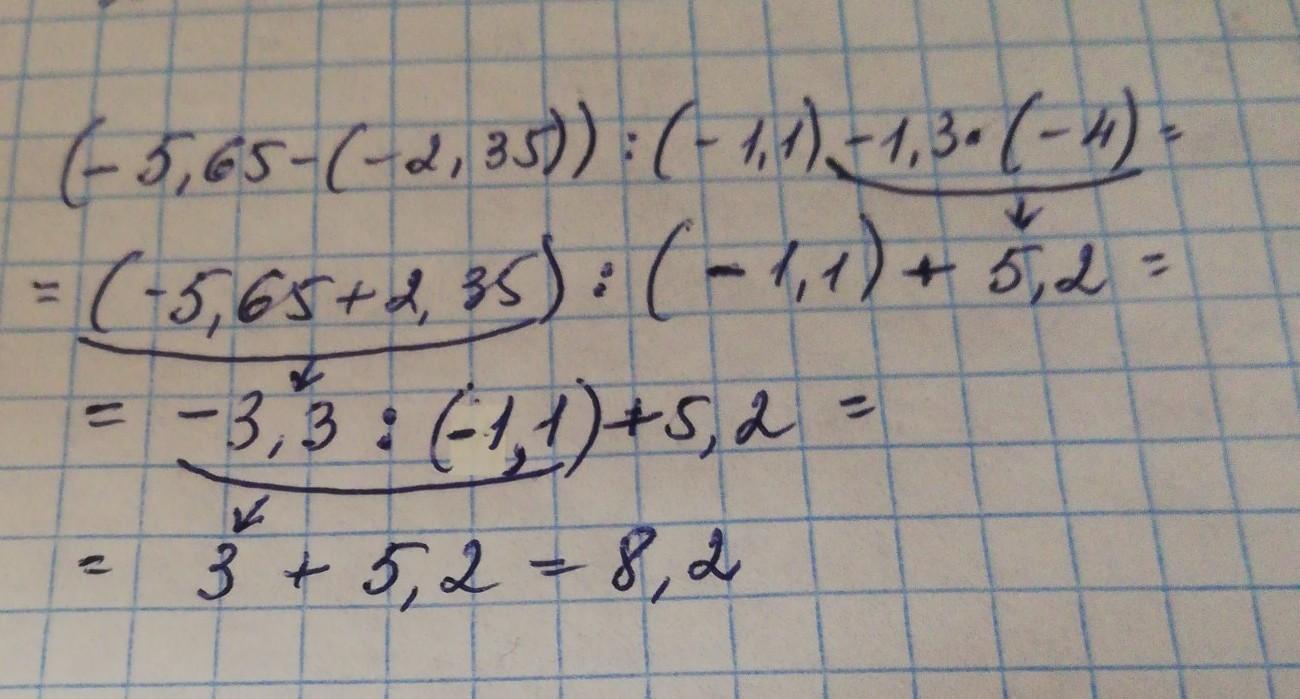 (-5,65-(-2,35)):(-1,1)-1,3·(-4)=
=(-5,65+2,35):(-1,1)+5,2=
=-3,3:(-1,1)+5,2=
=3+5,2=8,2